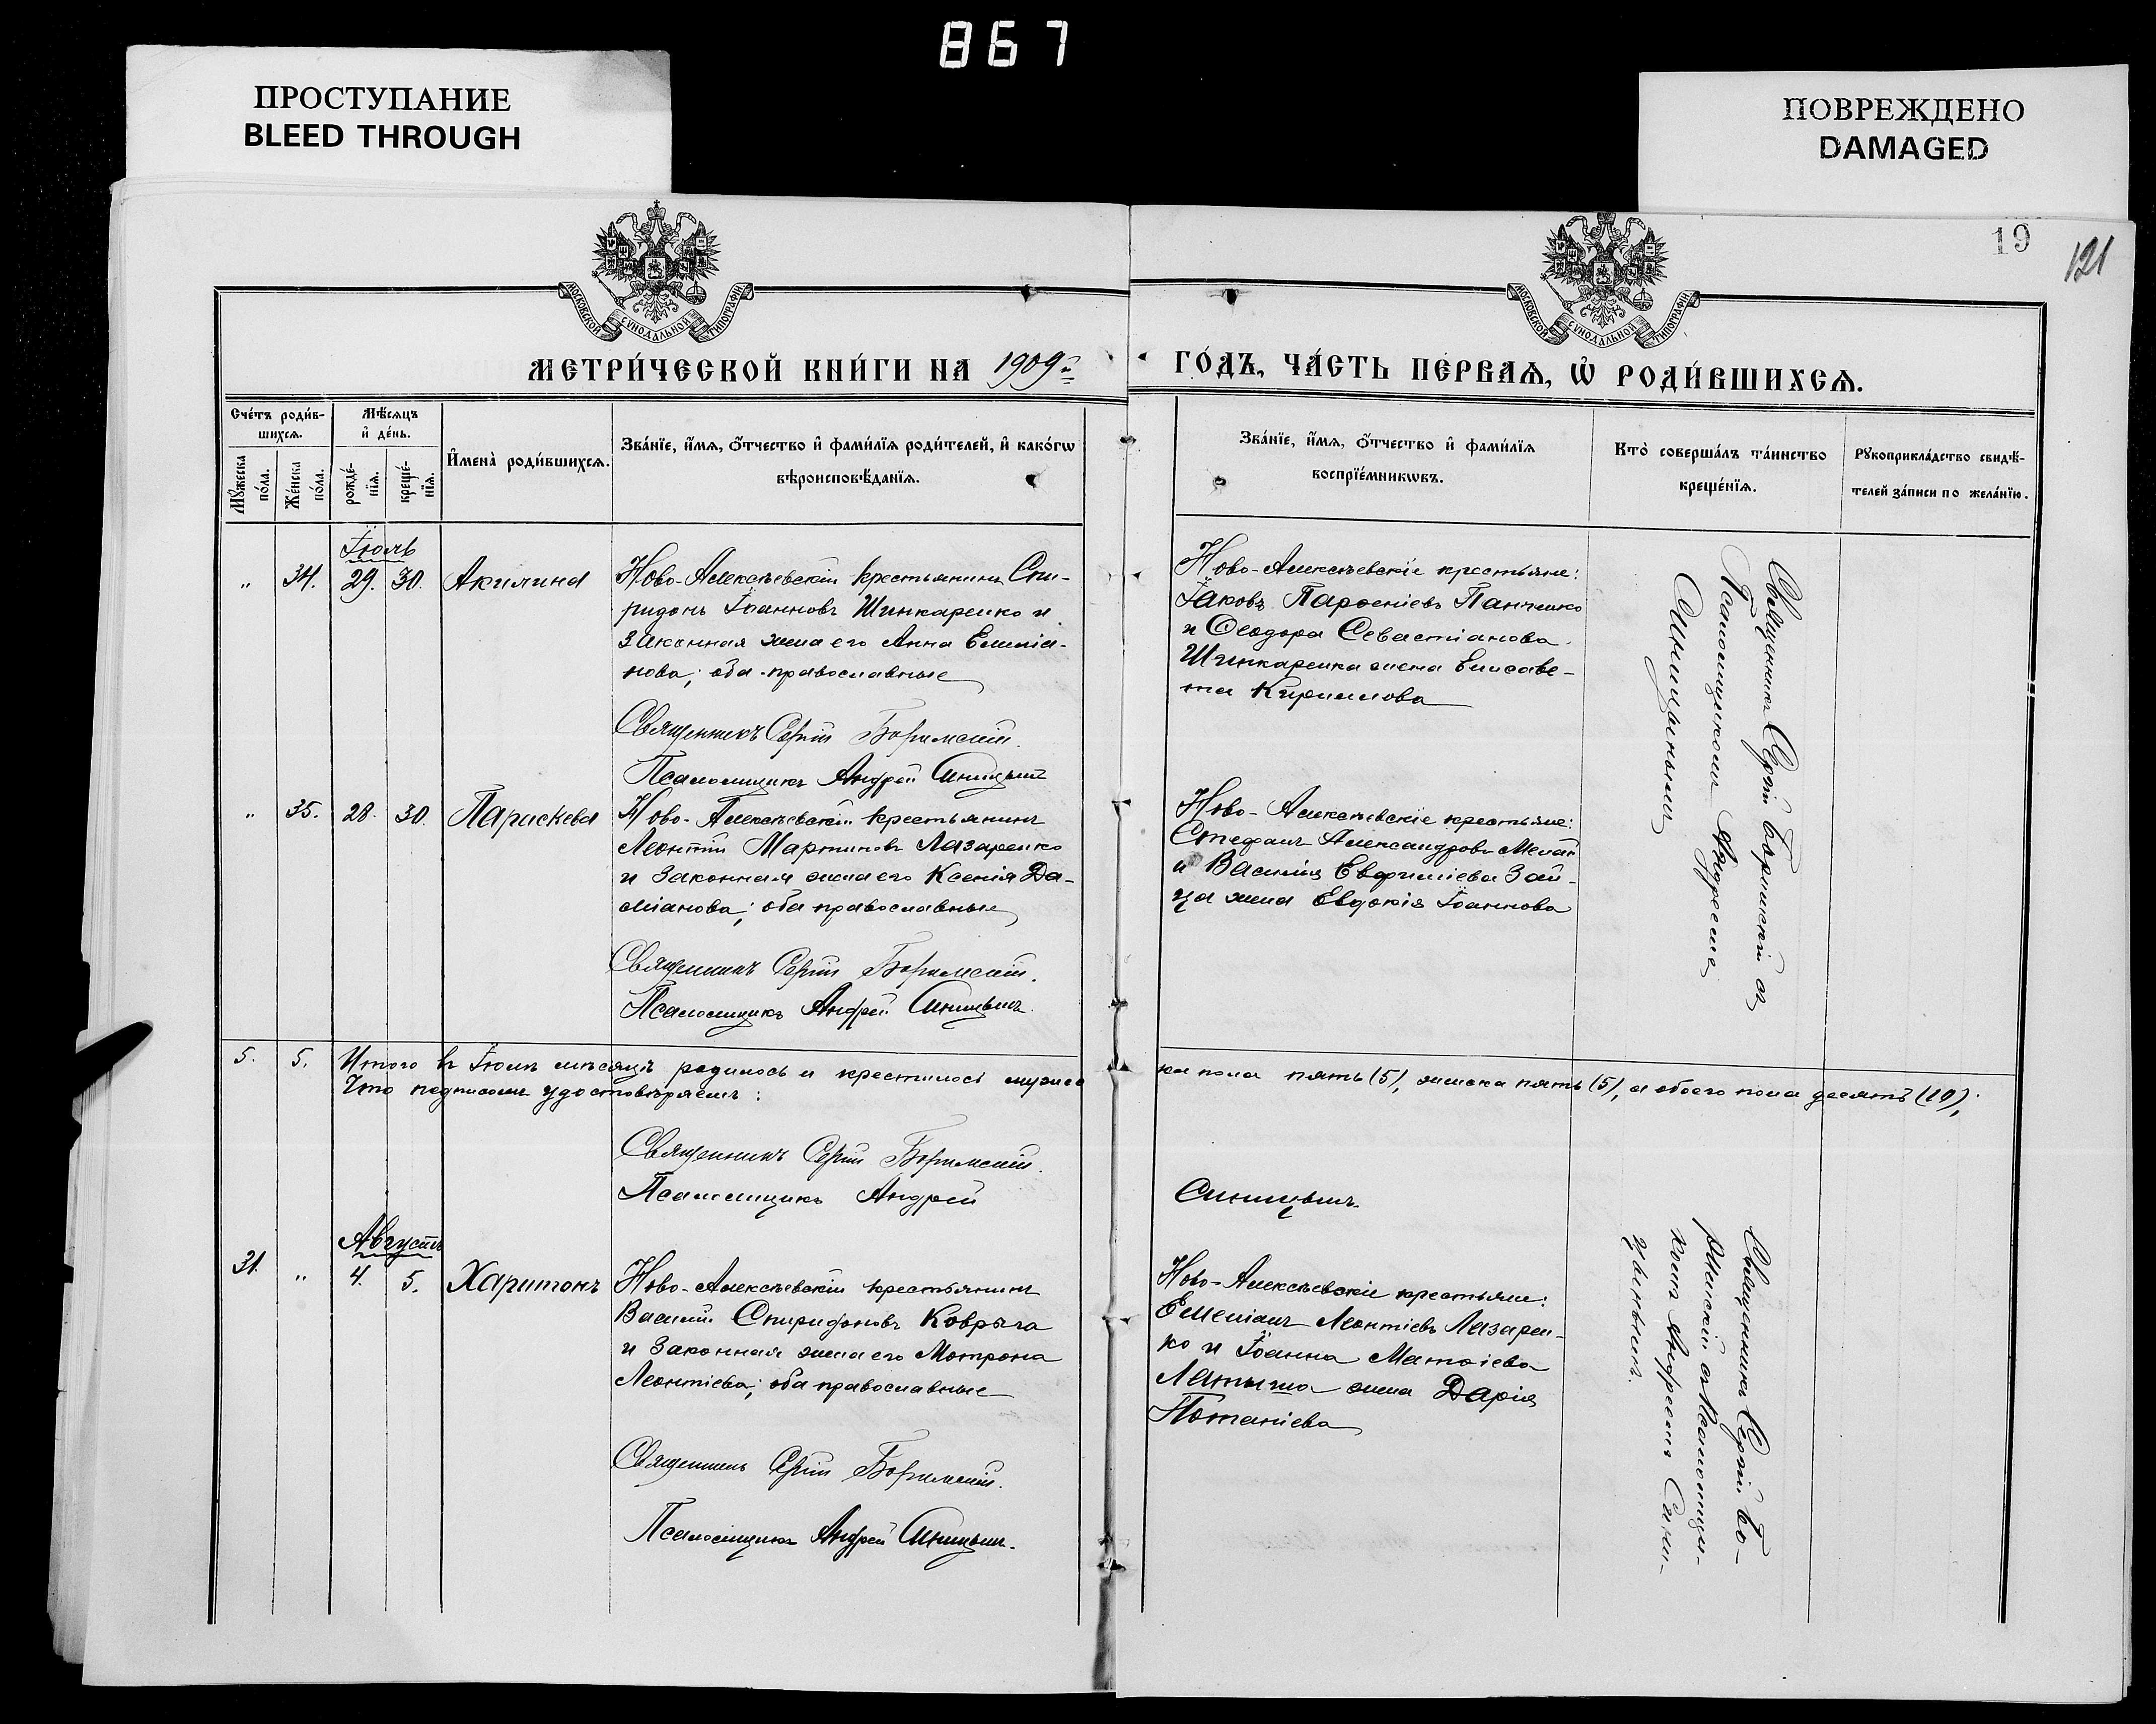 867
ПРОСТУПАНИЕ
BLEED THROUGH
ПОВРЕЖДЕНО
DAMAGED
19
121
МОСКОВСКОЙ СѴНОДАЛЬНОЙ ТИПОГРАФІИ
МОСКОВСКОЙ СѴНОДАЛЬНОЙ ТИПОГРАФІИ
МЕТРИ́ЧЕСКОЙ КНИ́ГИ НА 1909й ГО́ДЪ, ЧА́СТЬ ПЕ́РВАЯ, Ѡ҆ РОДИ́ВШИХСЯ.
Сче́тъ роди́в-
шихсѧ.
Мꙋ́жеска
по́ла.
Же́нска
по́ла.
Мѣ́сѧцъ
и҆ де́нь.
рожде́-
нїѧ.
креще́-
нїѧ.
И҆мена̀ роди́вшихсѧ.
Зва́нїе, и҆́мѧ, ѻ҆́тчество и҆ фами́лїѧ роди́телей, и҆ како́гѡ
вѣроисповѣ́данїѧ.
Зва́нїе, и҆́мѧ, ѻ҆́тчество и҆ фами́лїѧ
воспрїе́мникѡвъ.
Кто̀ соверша́лъ та́инство
креще́нїѧ.
Рꙋкоприкла́дство свидѣ́-
телей за́писи по жела́нїю.
Іюль
„ 34. 29. 30. Акилина
Ново-Алексѣевскій крестьянинъ Спи-
ридонъ Іоанновъ Шинкаренко и
законная жена его Анна Емилiа-
нова; оба православные
Священникъ Сергій Боримскій.
Псаломщикъ Андрей Синицынъ
Ново-Алексѣевскіе крестьяне:
Іаковъ Парѳеніевъ Панченко
и Ѳеодора Севастіанова
Шинкаренка жена Елисаве-
та Кириллова
Священникъ Сергій Боримскій съ
Псаломщикомъ Андреемъ
Синицынымъ
„ 35. 28. 30. Параскева
Ново-Алексѣевскій крестьянинъ
Леонтій Мартиновъ Лазаренко
и законная жена его Ксенія Да-
міанова; оба православные
Священникъ Сергій Боримскій.
Псаломщикъ Андрей Синицынъ.
Ново-Алексѣевскіе крестьяне:
Стефанъ Александровъ
и Василія Евфиміева Зай-
ца жена Евдокія Іоаннова
5. 5. Итого въ Іюлѣ мѣсяцѣ родилось и крестилось мужес
ка пола пять (5), женска пять (5), а обоего пола десять (10);
Что подписомъ удостовѣряемъ:
Священникъ Сергій Боримскій.
Псаломщикъ Андрей Синицынъ.
Августъ
31. „ 4. 5. Харитонъ
Ново-Алексѣевскій крестьянинъ
Василій Спиридоновъ Коврыга
и законная жена его Мотрона
Леонтіева; оба православные
Священникъ Сергій Боримскій.
Псаломщикъ Андрей Синицынъ.
Ново-Алексѣевскіе крестьяне:
Емеліанъ Леонтіевъ Лазарен-
ко и Іоанна Матѳіева
Латыша жена Дарія
Потапіева
Священникъ Сергій Бо-
римскій съ Псаломщи-
комъ Андреемъ Сини-
цынымъ.